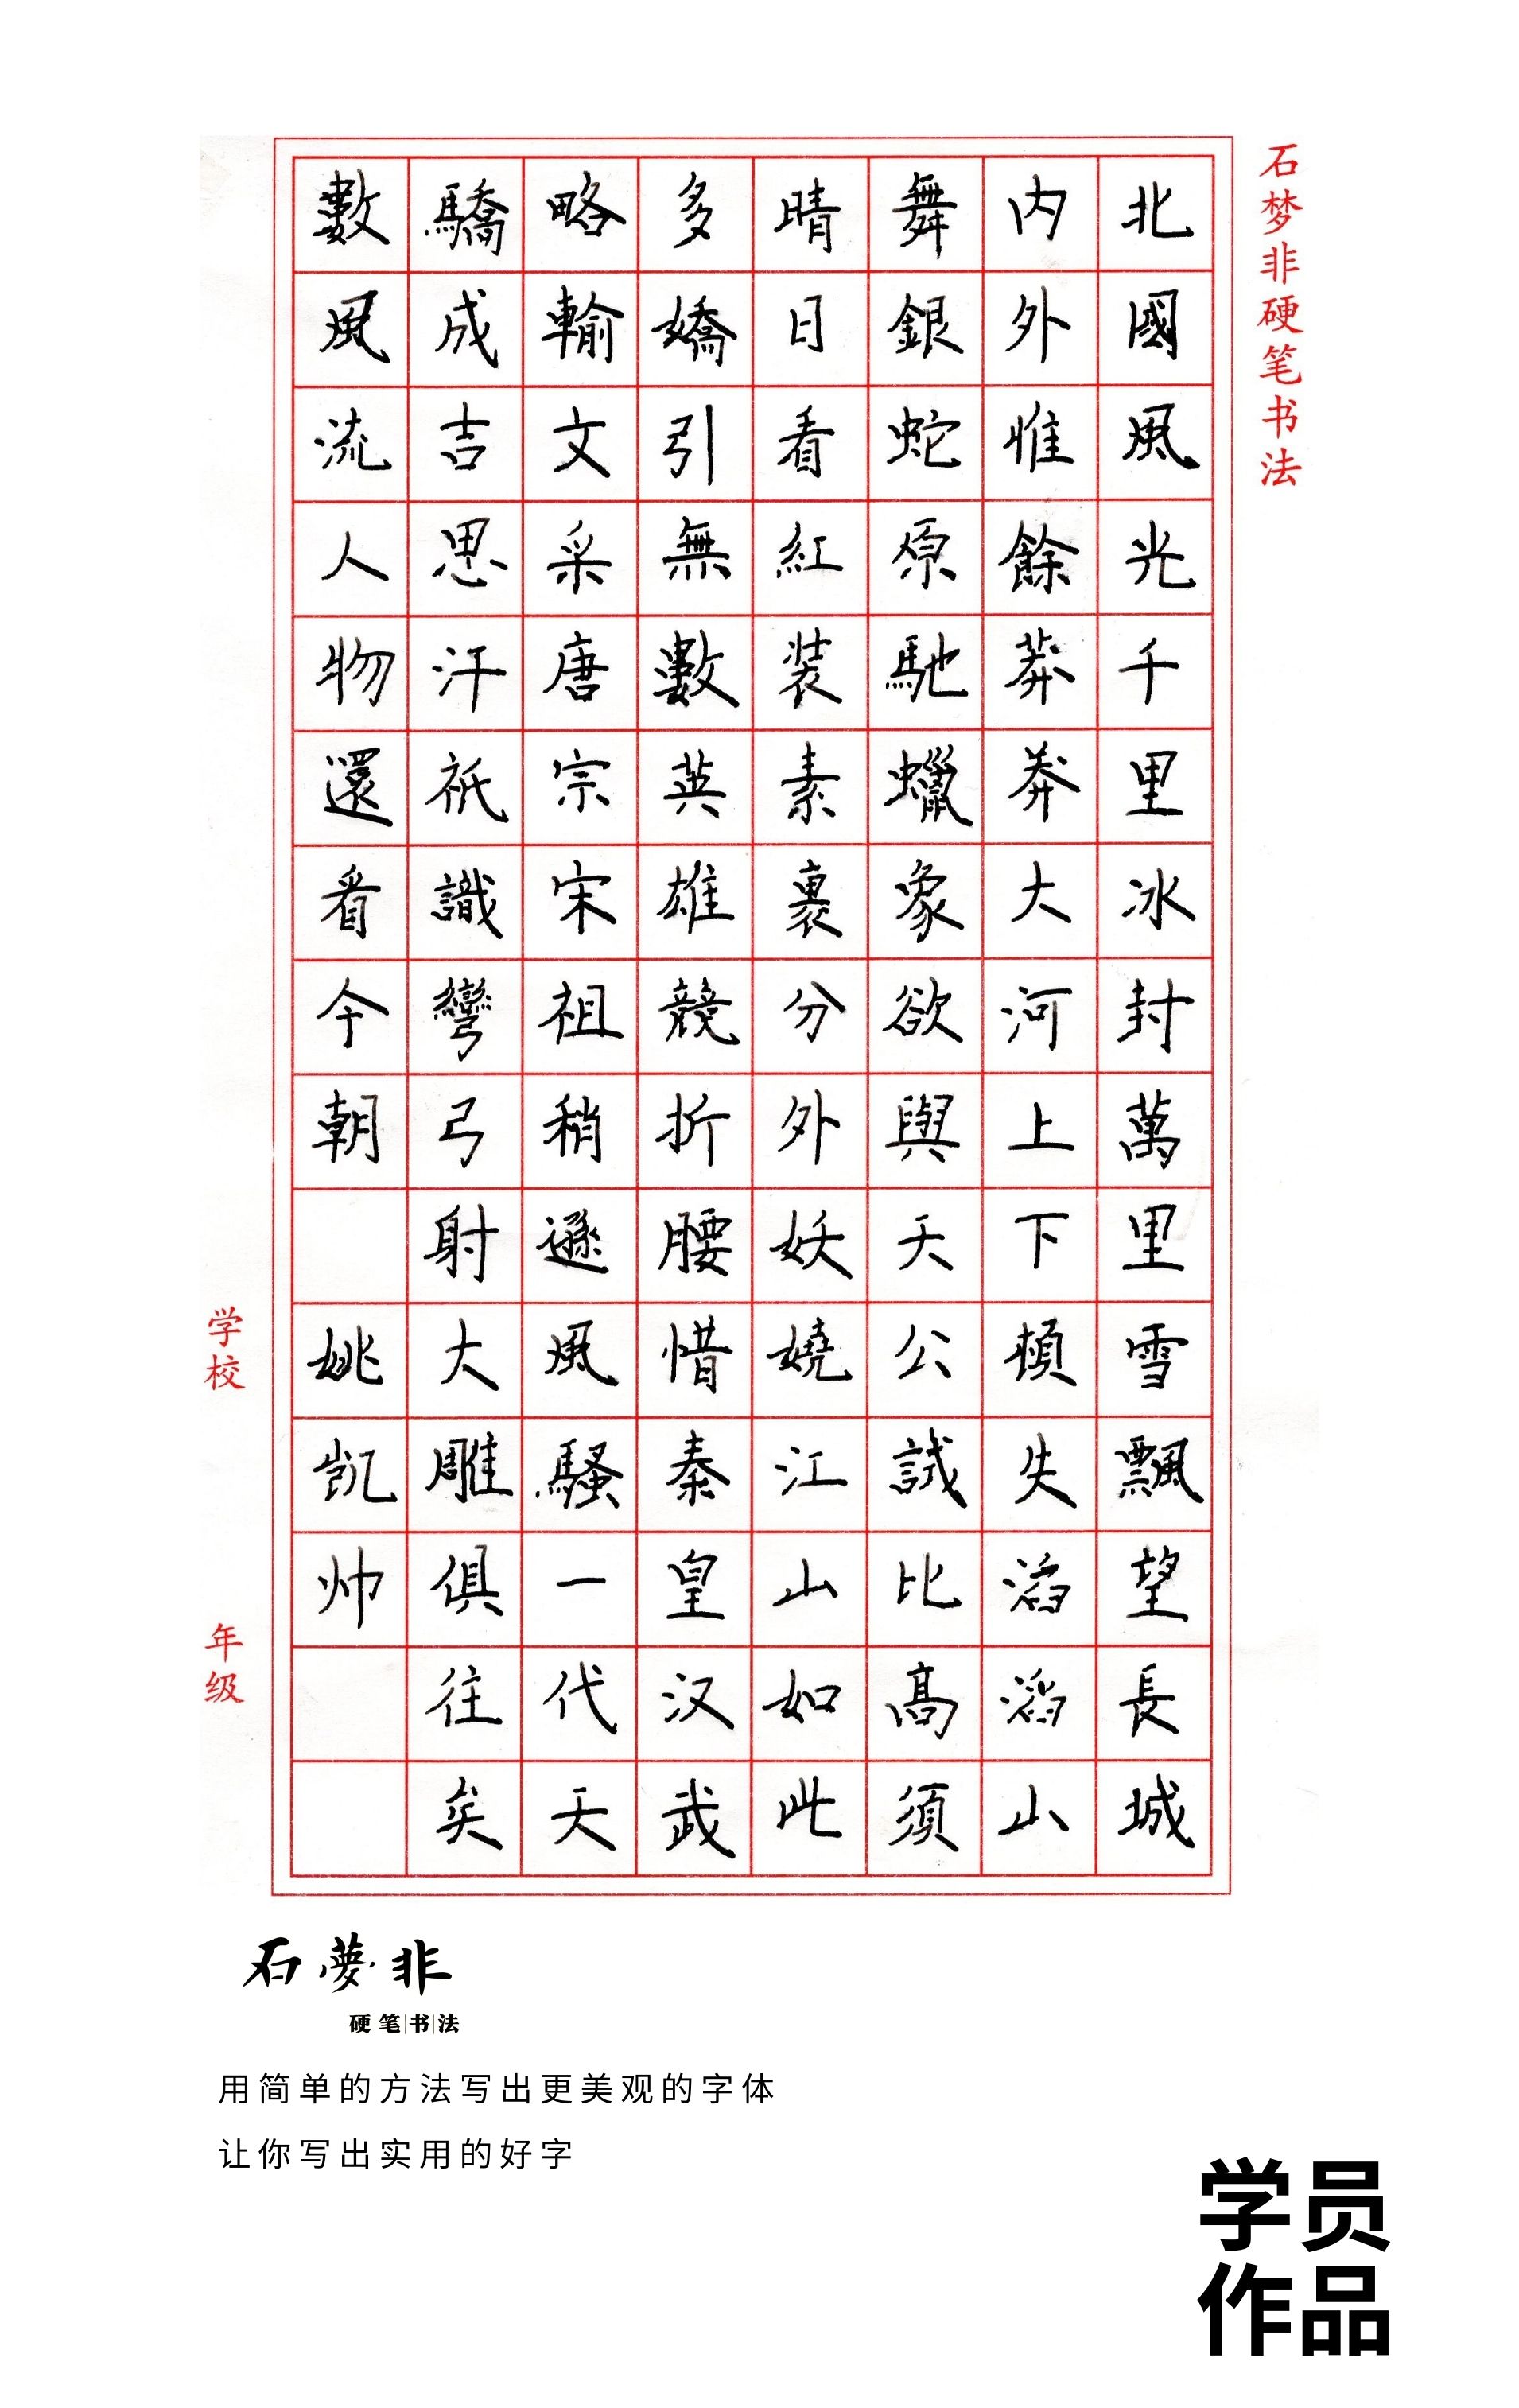 石梦非硬笔书法
北國風光千里冰封萬里雪飄望長城
内外惟餘莽莽大河上下頓失滔滔山
舞銀蛇原馳蠟象欲與天公試比高須
晴日看紅装素裹分外妖嬈江山如此
多嬌引無數英雄競折腰惜秦皇汉武
略輸文采唐宗宋祖稍遜風騷一代天
驕成吉思汗祇識彎弓射大雕俱往矣
數風流人物還看今朝 姚凯帅
学校 年级
石夢非
硬笔书法
用简单的方法写出更美观的字体
让你写出实用的好字
学员
作品